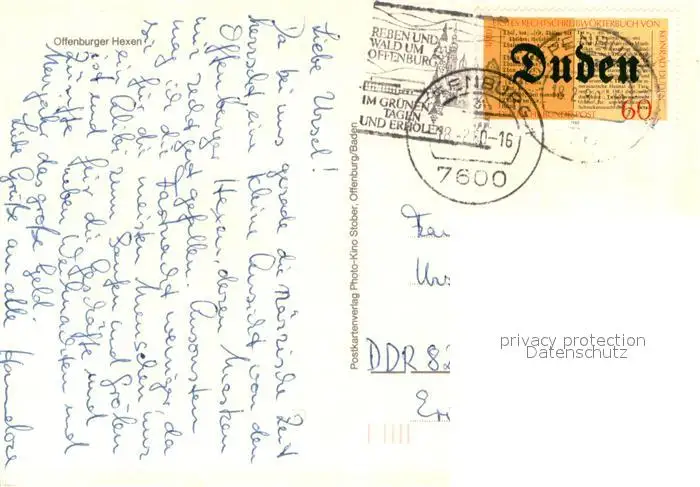 Offenburger Hexen
Liebe Ursel!
Da bei uns gerade die närrische Zeit
herrscht, ein kleine Ansicht von den
Offenburger Hexen, deren Masken
mir sehr gut gefallen. Ansonsten
mag ich die Fastnacht weniger, da
sie für die meisten Menschen nur
ein Alibi zum Saufen und Grölen
ist und für die Geschäfte und
Zünfte neben Weihnachten und
Neujahr das große Geld.
Liebe Grüße an alle Hannelore
Postkartenverlag Photo-Kino Stober, Offenburg/Baden
REBEN UND
WALD UM
OFFENBURG
IM GRÜNEN
TAGEN
UND ERHOLEN
OFFENBURG
-16
7600
RECHTSCHREIBWÖRTERBUCH VON
KONRAD DUDEN
Duden
60
BUNDESPOST
Frau
Urs
DDR 82
privacy protection
Datenschutz